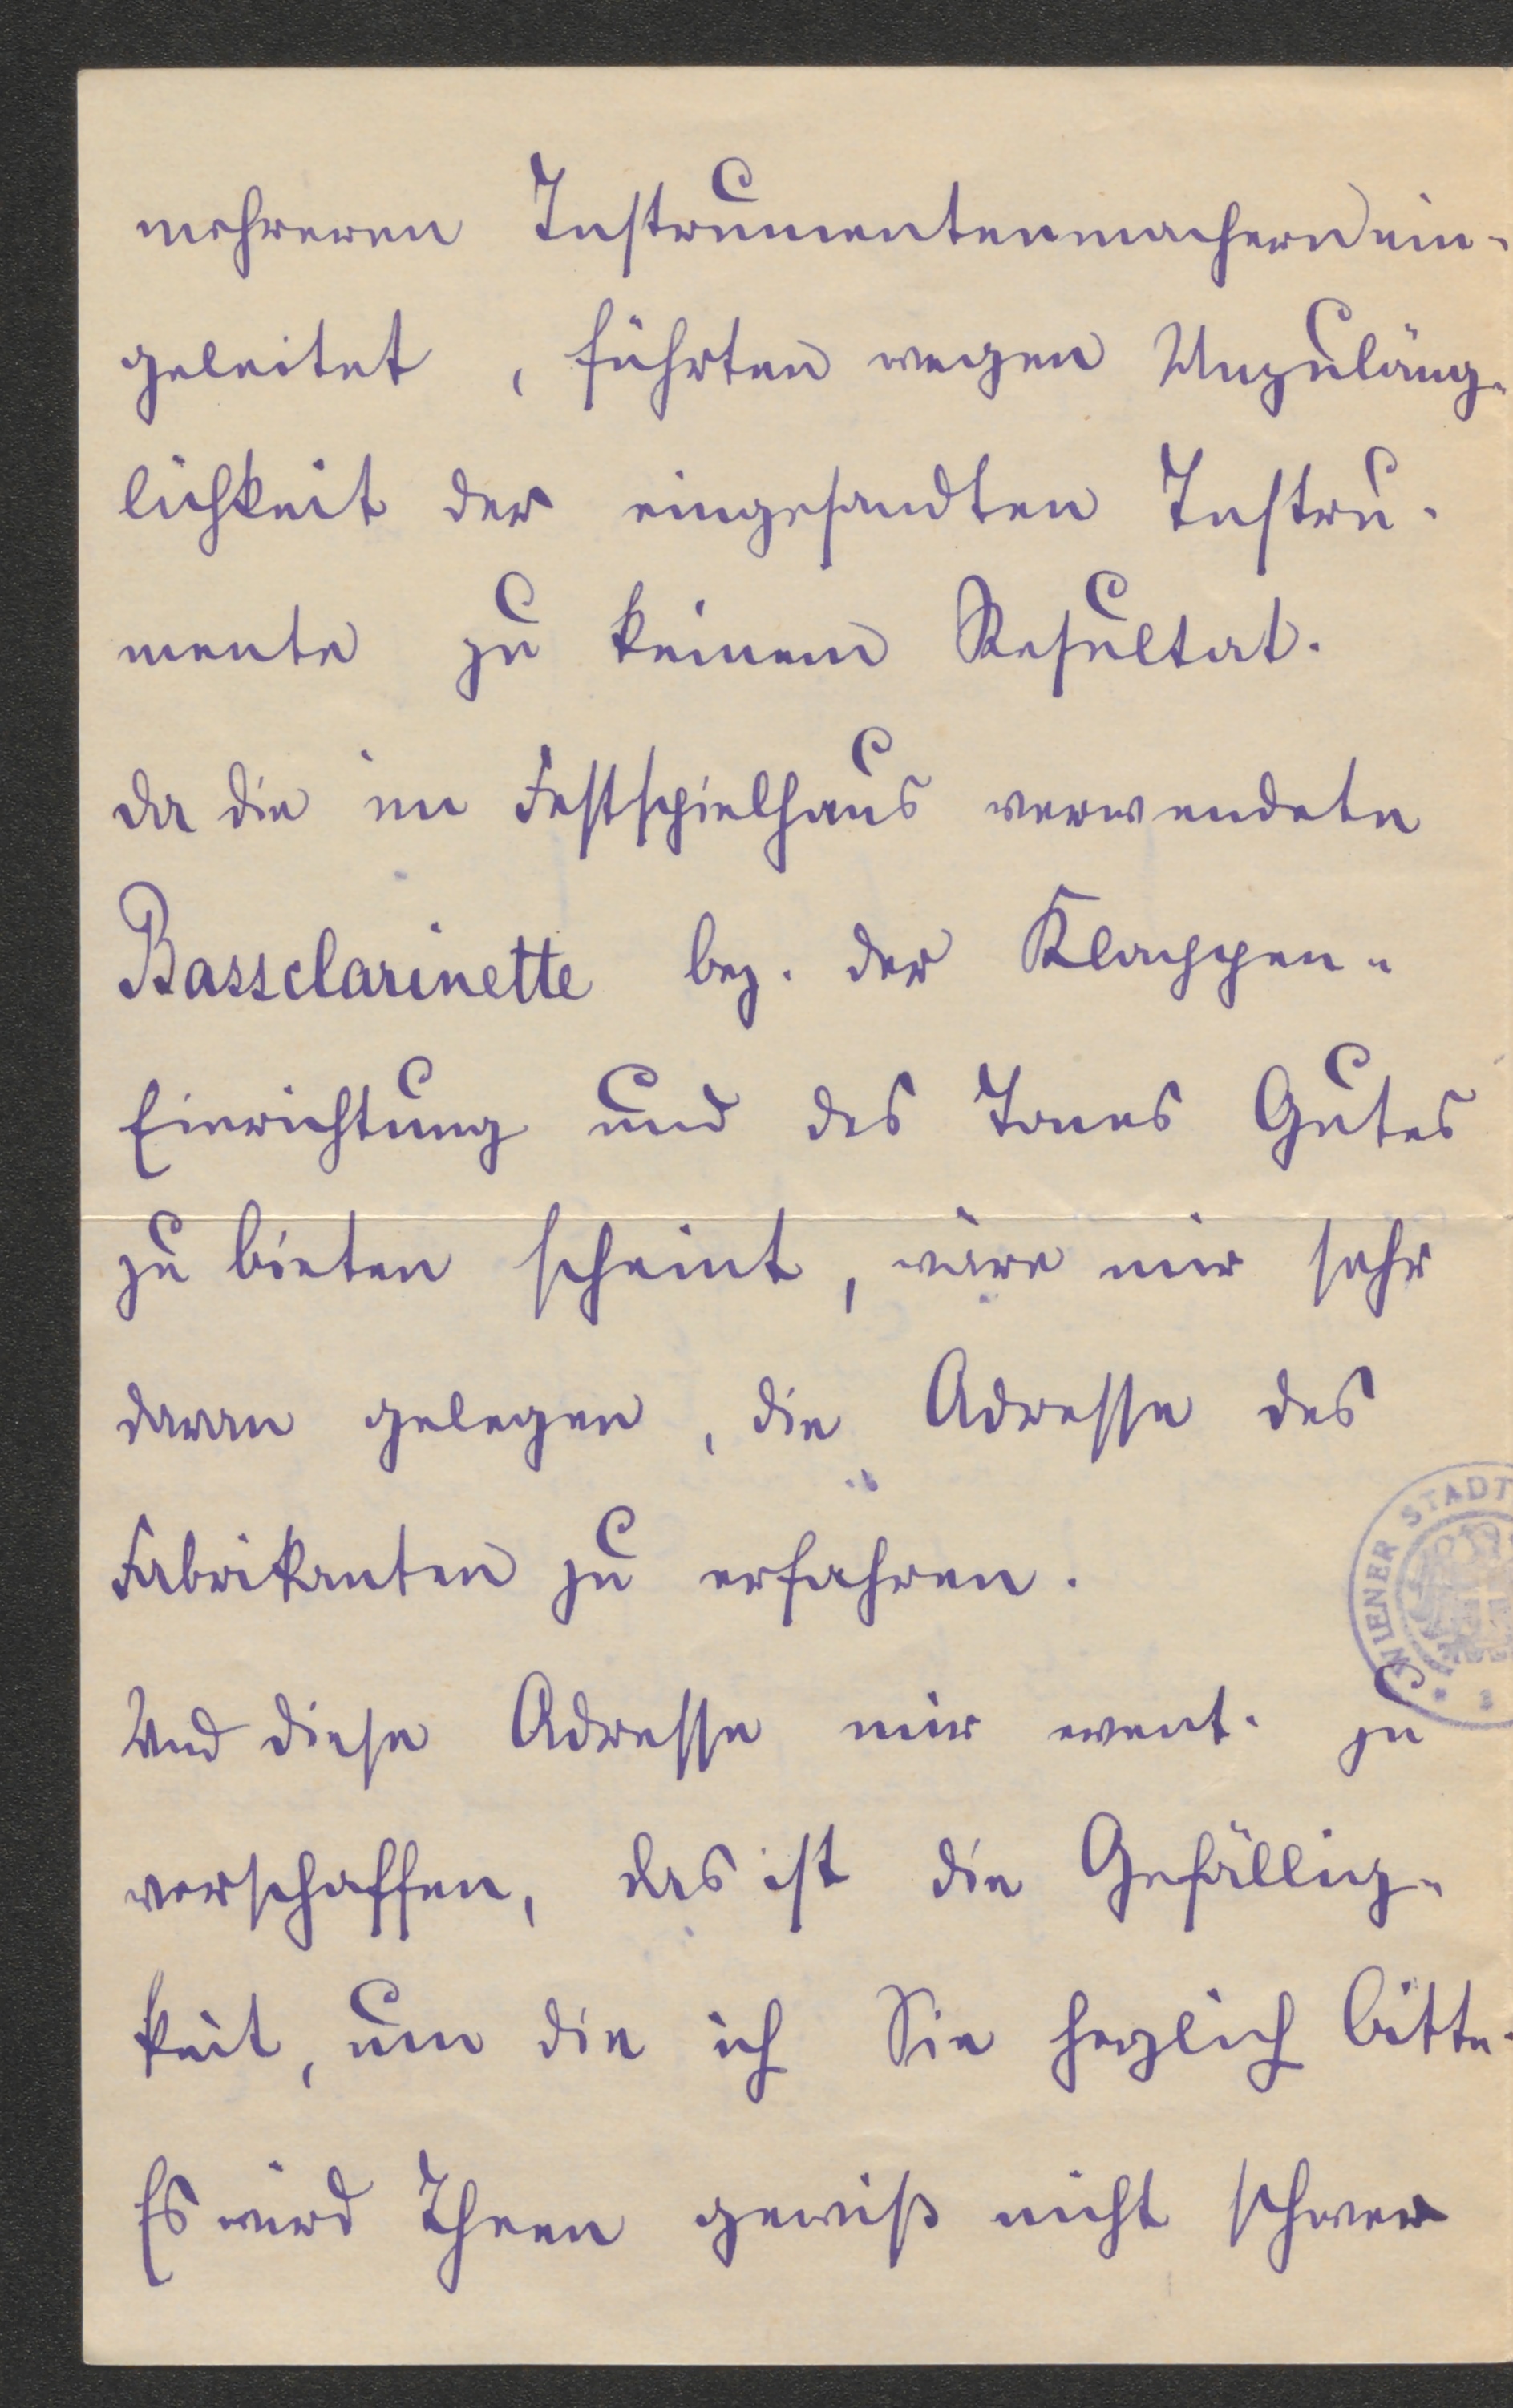 mehreren Instrumentenmachern ein-
geleitet, führten wegen Unzuläng-
lichkeit der eingesandten Instru-
mente zu keinem Resultat.
Da die im Festspielhaus verwendete
Bassclarinette bez. der Klappen-
Einrichtung und des Tones Gutes
zu bieten scheint, wäre mir sehr
daran gelegen, die Adresse des
Fabrikanten zu erfahren.
WIENER STADT
Und diese Adresse mir event. zu
verschaffen, das ist die Gefällig-
keit, um die ich Sie herzlich bitte.
Es wird Ihnen gewiß nicht schwer